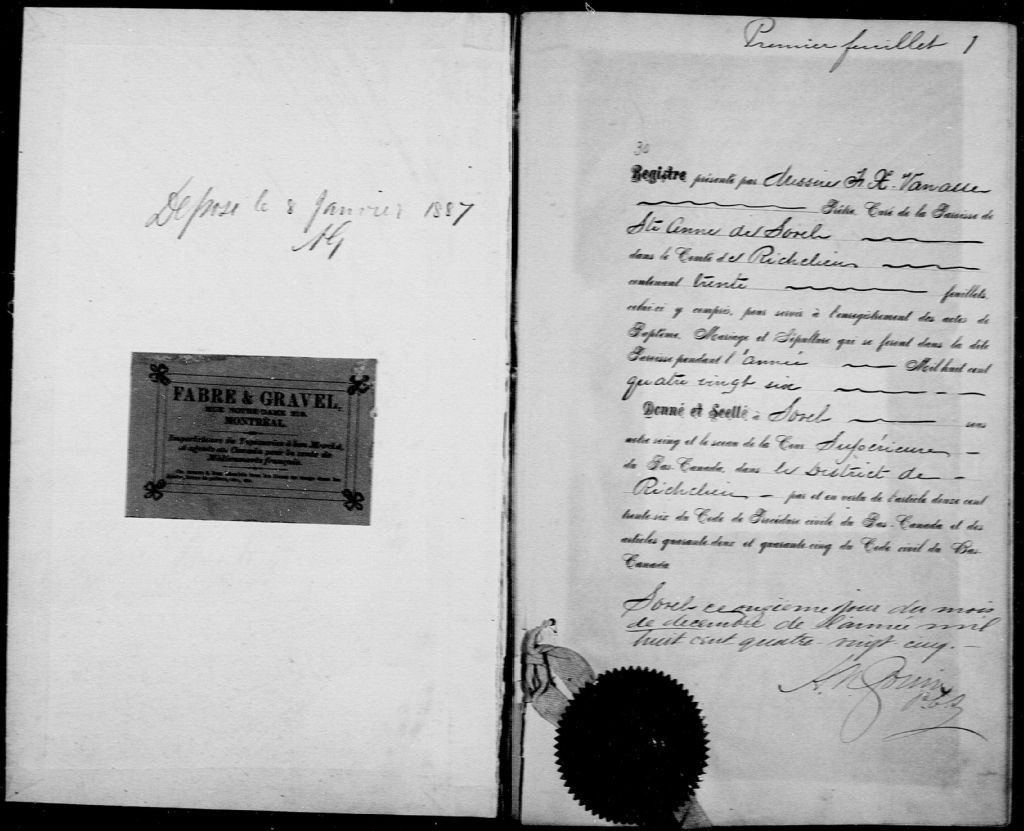 Déposé le 8 Janvier 1887
AG
FABRE & GRAVEL,
RUE NOTRE-DAME 219.
MONTRÉAL.
Importateurs de Papeteries à bon Marché,
et agents au Canada pour la vente de
Manufactures français.
Premier feuillet 1
30
Registre présenté par Messire F. X. Vanasse
Prêtre, Curé de la Paroisse de
Ste Anne de Sorel
dans le Comté de Richelieu
contenant trente feuillets,
celui-ci y compris, pour servir à l'enregistrement des actes de
Baptême, Mariage et Sépulture qui se feront dans la dite
Paroisse pendant l'année Mil huit cent
quatre vingt six
Donné et Scellé à Sorel sous
notre seing et le sceau de la Cour Supérieure
du Bas-Canada, dans le District de
Richelieu par et en vertu de l'article douze cent
trente-six du Code de Procédure civile du Bas-Canada et des
articles quarante-deux et quarante-cinq du Code civil du Bas-
Canada
Sorel ce onzieme jour du mois
de decembre de l'année mil
huit cent quatre-vingt cinq.
A. N. Gouin
P.C.S.